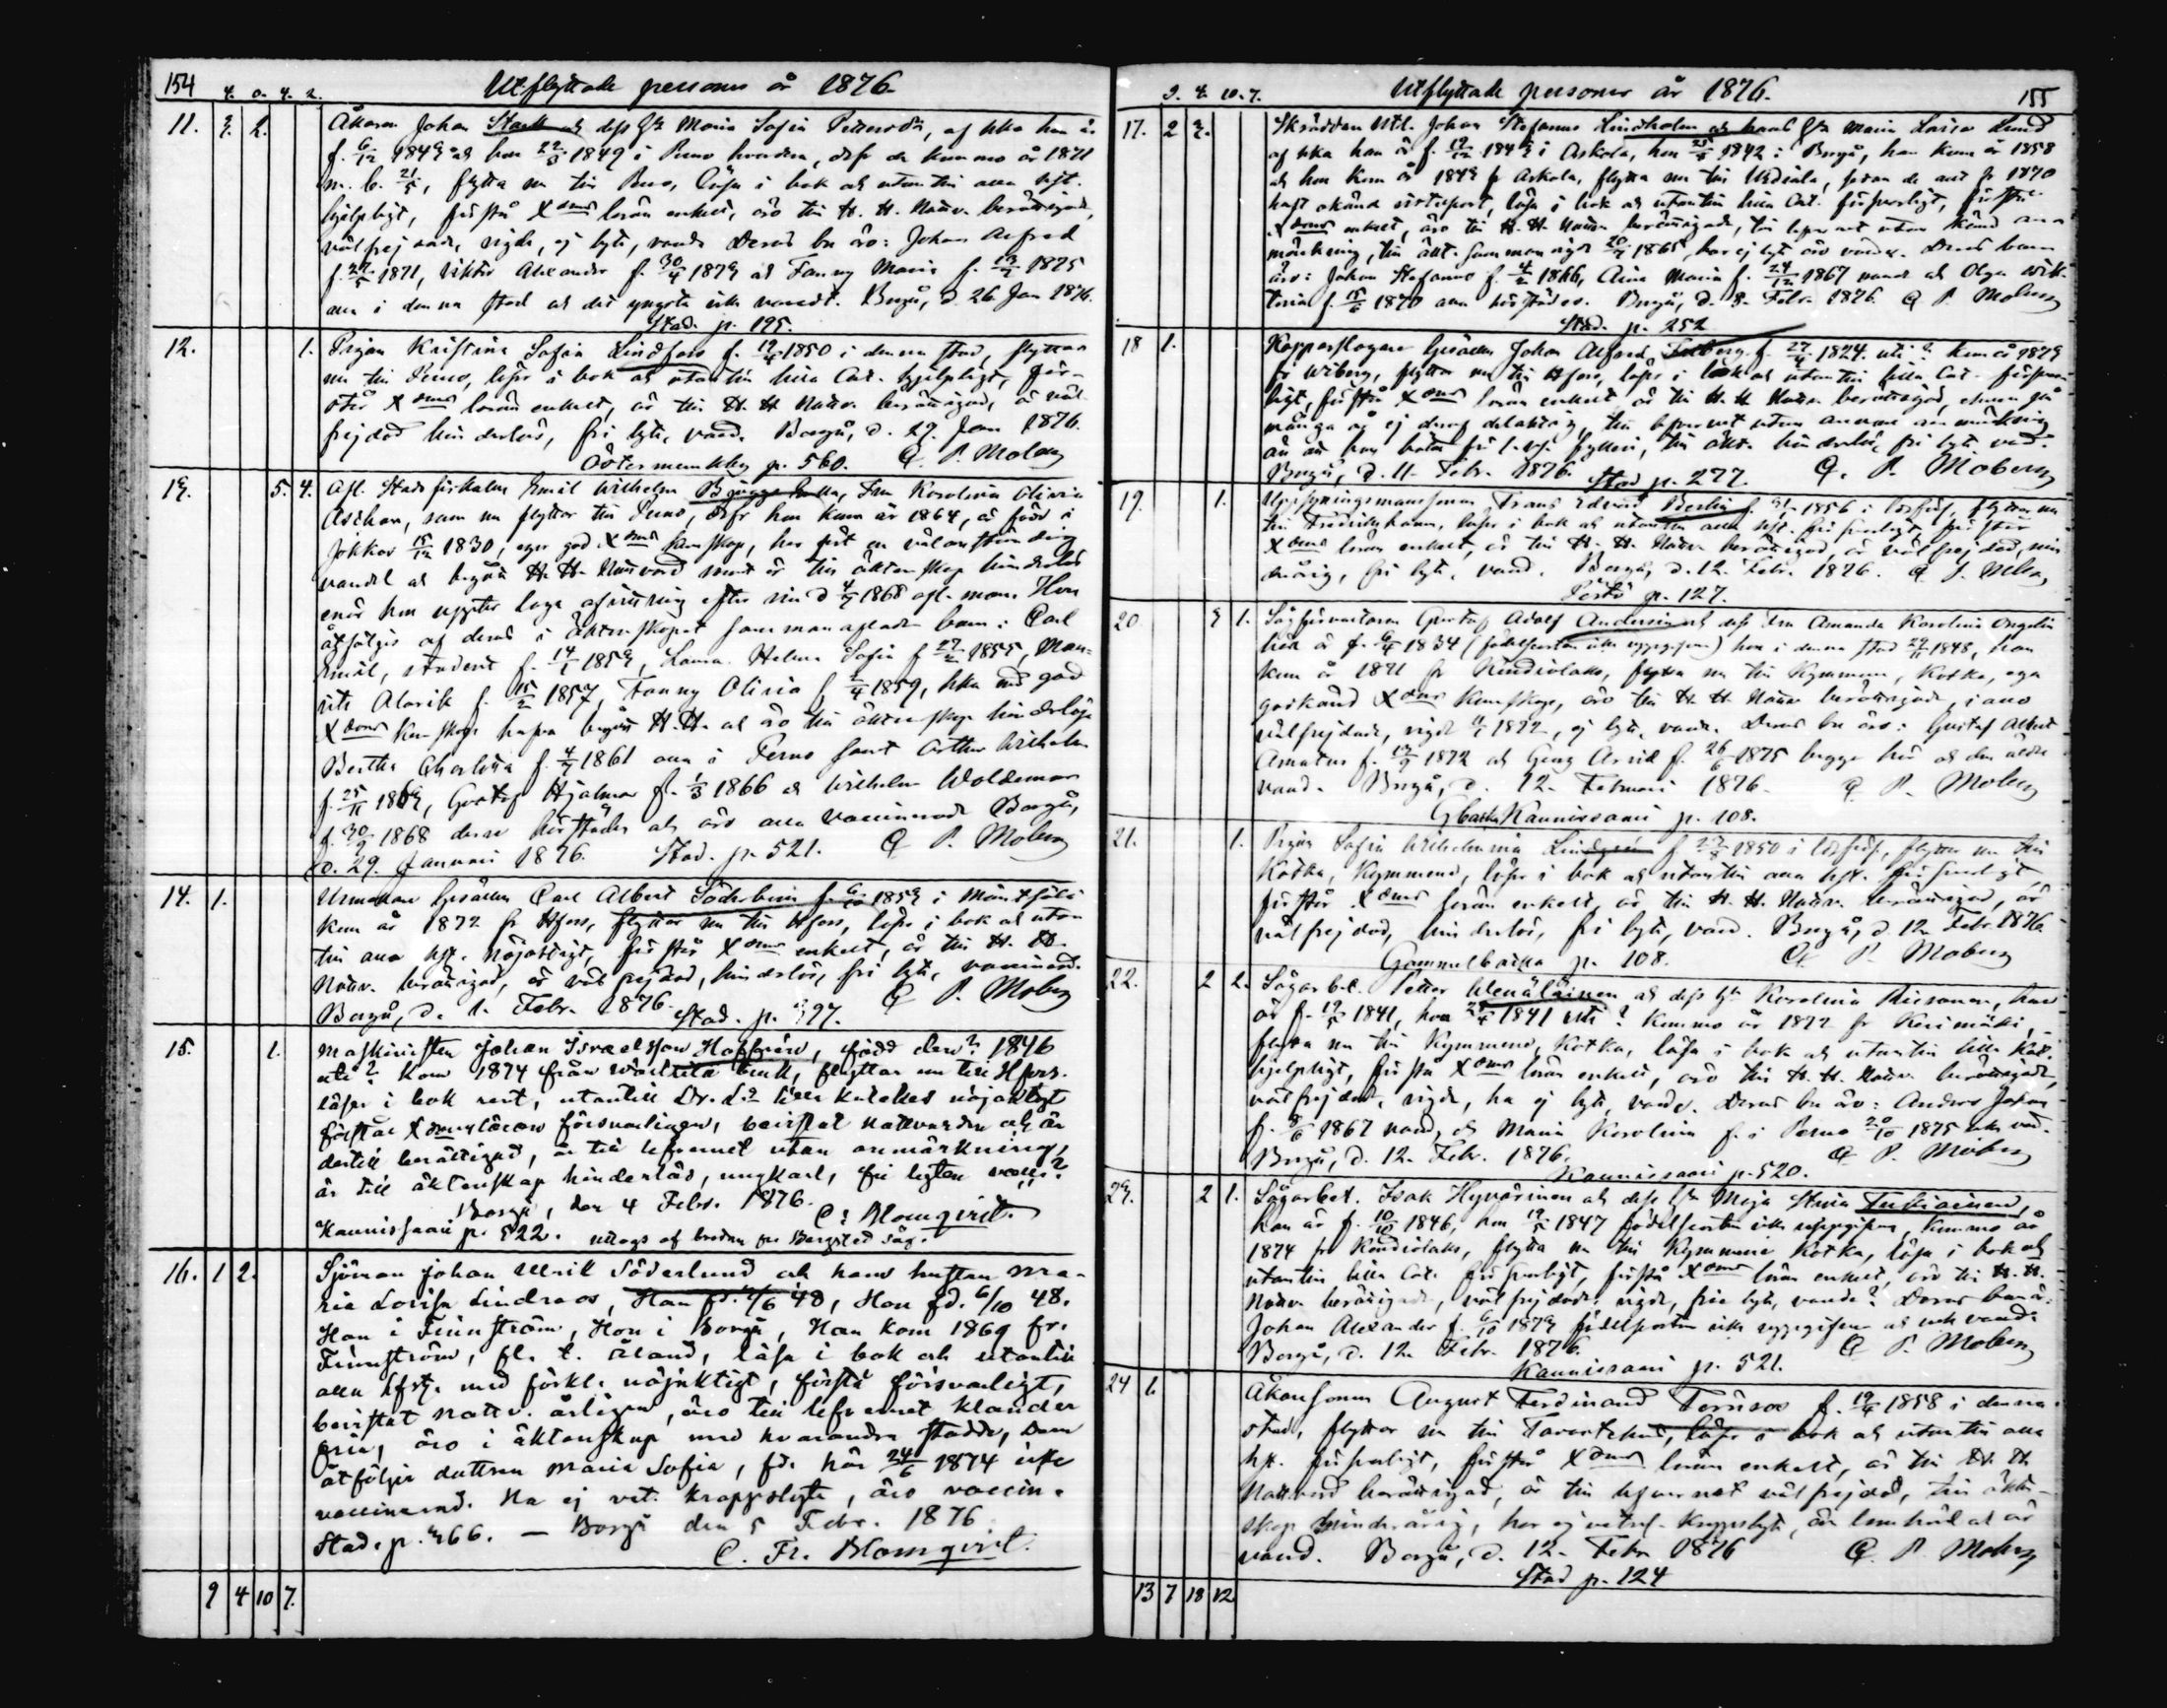 154 4. 0. 4. 2. Utflyttade personer år 1876.
11. 3. 2. Åkaren Johan Stark och dess h:u Maria Sofia af hka han är
f. 6/12 1843 och hon 22/3 1849 i Perno hvardera, dfr de kommo år 1871
m. b. 21/5, flytta nu till Perno, läsa i bok och utantill alla hst.
hjelpligt, förstå Xdoms läran enkelt, äro till H. H. Nattv. berättigade,
välfrejdade, vigde, ej lyte, vaude Deras bn äro: Johan Alfred
f. 1871, Viktor Alexander f. 30/4 1873 och Fanny Maria f. 13/7 1875
alla i denna stad och det yngsta icke vaccdt. Borgå, d. 26 Jan 1876.
Stad. p. 195.
12. 1. Pigan Kristina Sofia Lindfors f. 19/4 1850 i denna stad, flyttar
nu till Perno, läser i bok och utantill lilla Cat. hjelpligt, för-
står Xdoms läran enkelt, är till H. H. Nattv. berättigad, är väl-
frejdad hinderlös, fri lyte, vaud. Borgå, d. 27. Jan 1876.
Östermunkby p. 560. G. P. Moberg
13. 5. 4. Afl. Stadsfiskalen Emil Wilhelm enka, Fru Karolina Olivia
Aschan, som nu flyttar till Perno, dfr hon kom år 1864, är född i
Jokkas 15/12 1830, eger god Xdoms kunskap, har fört en välanständig
vandel och begått H. H. Nattvard samt är till äktenskap hinderlös
enär hon uppter laga afvittring efter sin d 4/7 1868 afl. man. Hon
åtföljes af deras i äktenskapet sammanaflade barn: Carl
Emil, student f. 14/1 1853, Laura Helena Sofia f 27/2 1855, Mau-
ritz Alarik f. 15/2 1857, Fanny Olivia f 2/4 1859, hka med god
Xdoms kunskap hafva begått H. H. och äro till äktenskap hinderlösa
Bertha Charlotta f. 4/7 1861 alla i Perno samt Arthur Wilhelm
f. 25/11 1863, Gustaf Hjalmar f. 1/3 1866 och Wilhelm Woldemar
f. 30/9 1868 desse härstädes och äro alla vaccinerade Borgå,
d. 29. Januari 1876. Stad. p. 521. G P. Moberg
14. 1. Urmakare Gesällen Carl Albert Söderholm f. 6/10 1853 i Mäntsälä
kom år 1872 fr Hfors, flyttar nu till Hfors, läser i bok och utan
till alla hst. nöjaktigt, förstår Xdoms enkelt, är till H. H.
Nattv. berättigad, är välfrejdad, hinderlös, fri lyte, vaccinerad.
Borgå, d. 1. Febr. 1876. Stad. p. 397. G P. Moberg
15. 1. Maskinisten Johan Israelsson Hoffrén, född den? 1846
uti? kom 1874 från Wärtsilä bruk, flyttar nu till Hfors.
läser i bok rent, utantill Dr. L:s lilla kateches nöjaktigt
förstår Xdomsläran försvarligen, bevistat nattvarden och är
dertill berättigad, är till lefvernet utan anmärkning,
är till äktenskap hinderlös, ungkarl, fri lyten vacc:?
Borgå, den 4 Febr. 1876. C. Blomqvist.
Kannissaari p. 522. uttogs af brodren fr Borgsted såg.
16. 1 2. Sjöman Johan Ulrik Söderlund och hans hustru Ma-
ria Lovisa Lindroos, Han fd. 1/6 48, Hon fd. 6/10 48.
Han i Finnström, Hon i Borgå, Han kom 1869 fr.
Finnström, fl. t. Åland, läsa i bok och utantill
alla hfst. med förkl. nöjaktigt, förstå försvarligt,
bevistat nattv. årligen, äro till lefvernet klander
fria, äro i äktenskap med hvarandra stadde, dem
åtföljer dottren Maria Sofia, fd. här 24/6 1874 icke
vaccinerad. Ha ej vet. kroppslyte, äro vaccin.
Stad. p. 366. — Borgå den 5 Febr. 1876
C. Fr. Blomqvist.
9 4 10 7.
9. 4. 10. 7. Utflyttade personer år 1876. 155
17. 2 3. Skrädden Johan Stefanus Lindholm och hans h:u Maria Lovisa Lund
af hka han är f. 19/12 1843 i Askola, hon 25/5 1842 i Borgå, han kom år 1858
och hon kom år 1843 fr Askola, flytta nu till Urdiala, sedan de allt fr 1870
haft okänd vistelseort, läsa i bok och utantill lilla Cat. försvarligt, förstå
Xdoms enkelt, äro till H. H. Nattv. berättigade, till lefvernet utan känd an-
märkning, till äkt. sammanvigde 20/7 1865, har ej lyte äro vaude. Deras barn
äro: Johan Stefanus f. 4/2 1866, Aina Maria f. 24/12 1867 vaude och Olga Wik-
toria f. 15/6 1870 alla härstädes. Borgå, d. 8. Febr. 1876. G P. Moberg
Stad. p. 252
18 1. Kopparslagare Gesällen Johan Alfred f. 27/4 1824. uti? kom år 1873
fr Wiborg, flyttar nu till Hfors, läser i bok och utantill lilla Cat. försvar-
ligt, förstår Xdoms läran enkelt är till H. H. Nattv. berättigad,
många år ej deraf delaktig, till lefvernet utan annan anmärkning
än att han bötat för fylleri, till äkt. hinderlös, fri lyte vaud.
Borgå, d. 11. Febr. 1876. Stad p. 277. G. P. Moberg
19. 1. Uppsyningsmanssonen Frans Edvard Berlin f. 1856 i flyttar nu
till Fredrikshamn, läser i bok och utantill alla hst. försvarligt, förstår
Xdoms läran enkelt, är till H. H. Nattv. berättigad, är välfrejdad, min-
derårig, fri lyte, vaud. Borgå, d. 12. Febr. 1876. G P. Moberg
p. 127.
20 3 1. Sågförvaltaren Gustaf Adolf Andersin och dess Fru Amanda Karolina
han är f. 6/4 1834 (födelseorten icke uppgifven) hon i denna stad 29/11 1848, han
kom år 1871 fr Kondiolaks, flytta nu till Kymmene, Kotka, ega
godkänd Xdoms kunskap, äro till H. H. Nattv. berättigade, äro
välfrejdade, vigde 1872, ej lyte, vaude. Deras bn äro: Gustaf Albert
Amatus f. 13/7 1872 och Georg Arvid f. 26/6 1875 begge här och den äldre
vaud. Borgå, d. 12. Februari 1876. G. P. Moberg
Gbacka Kannissaari p. 108.
21. 1. Pigan Sofia Wilhelmina Lindgren f 27/8 1850 i flyttar nu till
Kotka, Kymmene, läser i bok och utantill alla hst. försvarligt
förstår Xdoms läran enkelt, är till H. H. Nattv. berättigad, är
välfrejdad, hinderlös, fri lyte, vaud. Borgå, d 12. Febr. 1876.
Gammelbacka p. 108. G. P. Moberg
22. 2 2. Sågarbet. Petter Wenäläinen och dess h:u Karolina han
är f. 19/5 1841, hon 1841 uti? kommo år 1872 fr Kerimäki,
flytta nu till Kymmene, Kotka, läsa i bok och utantill lilla Kat.
hjelpligt, förstå Xdoms läran enkelt, äro till H. H. Nattv. berättigade,
välfrejdade, vigde, ha ej lyte, vaude. Deras bn äro: Anders Johan
f. 8/6 1867 vaud, och Maria Karolina f. i Perno 20/10 1875 icke vaud.
Borgå, d. 12. Febr. 1876. G. P. Moberg
Kannissaari p. 520.
23. 2 1. Sågarbet. Isak Hyvärinen och dess h:u Maja Stina
han är f. 10/10 1846, hon 19/5 1847 födelseorten icke uppgifven, kommo år
1874 fr Kondiolaks, flytta nu till Kymmene Kotka, läsa i bok och
utantill lilla Cat. försvarligt, förstå Xdoms läran enkelt, äro till H. H.
Nattv. berättigade, välfrejdade, vigde, fria lyte, vaude? Deras barn är:
Johan Alexander f. 6/10 1873 födelseorten icke uppgifven och icke vaud.
Borgå, d. 12. Febr. 1876. G P. Moberg
Kannissaari p. 521.
24 1. Åkaresonen August Ferdinand f. 19/4 1858 i denna
stad, flyttar nu till Tavastehus, läser i bok och utantill alla
hst. försvarligt, förstår Xdoms läran enkelt, är till H. H.
Nattvard berättigad, är till lefvernet välfrejdad, till äkten-
skap minderårig, har ej kroppslyte, och är
vaud. Borgå, d. 12. Febr 1876 G. P. Moberg
Stad p. 124
13 7 18 12.